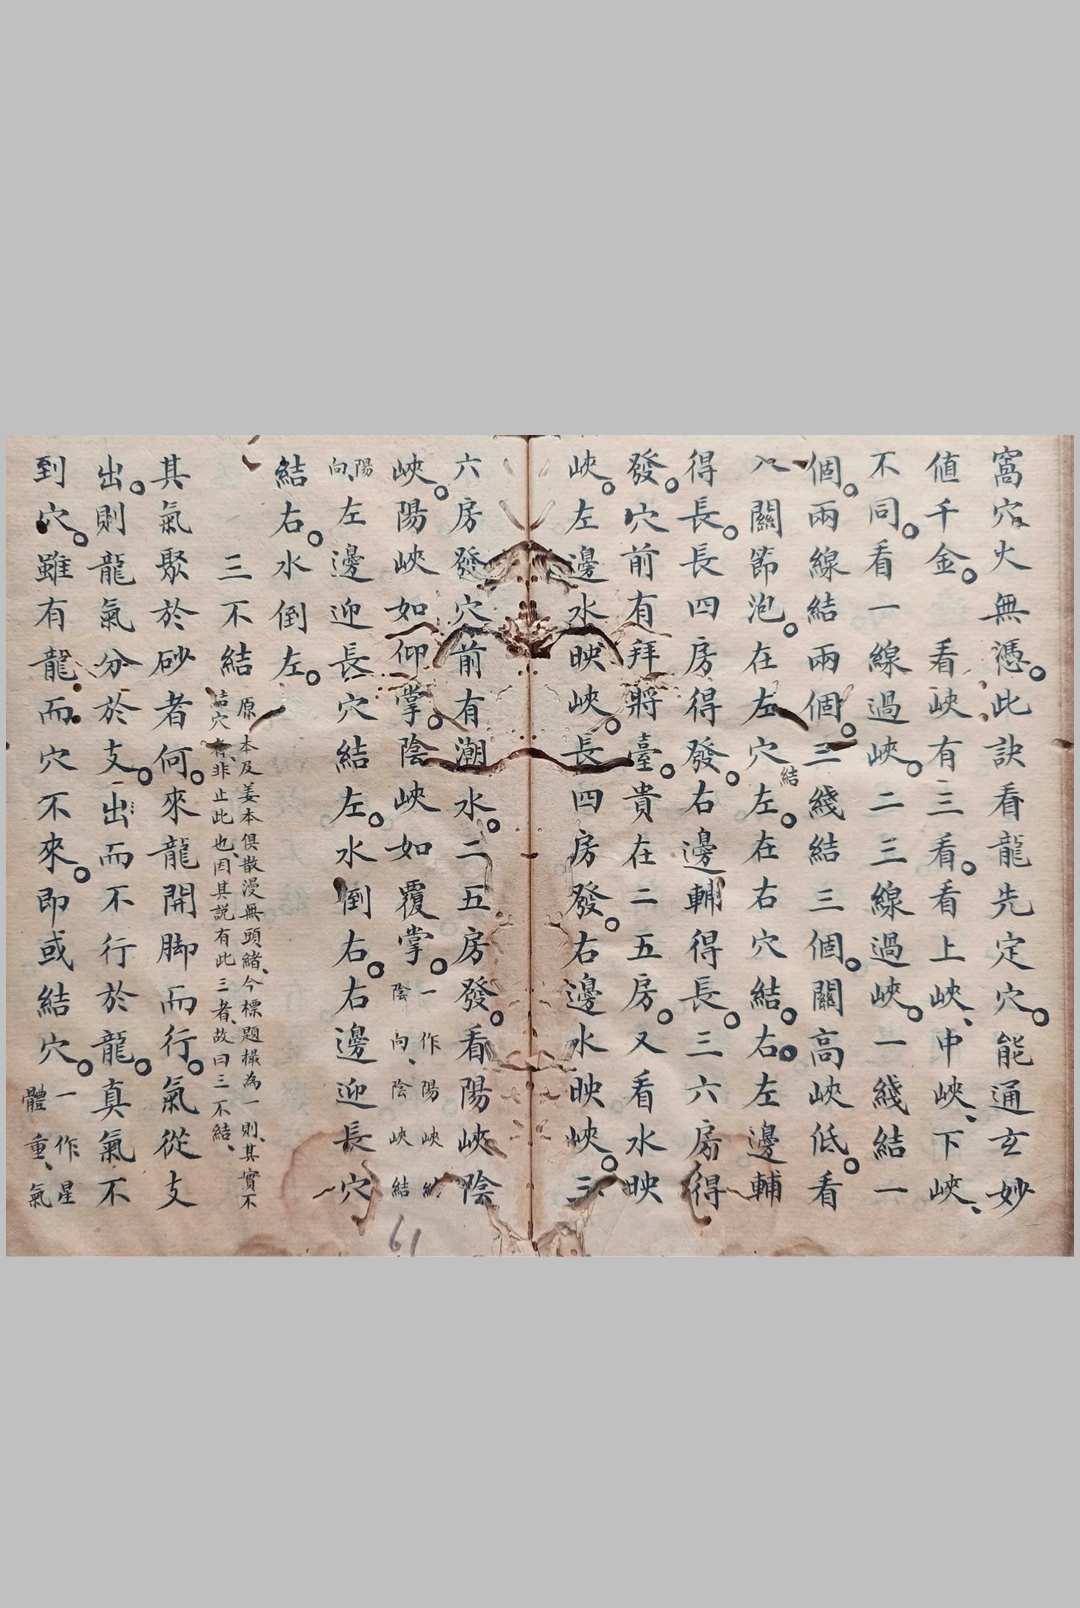 窩穴火無憑。此訣看龍先定穴。能通玄妙
值千金。 看峽有三看。看上峽、中峽、下峽、
不同。看一線過峽。二三線過峽。一綫結一
個。兩線結兩個。三綫結三個。關高峽低。看
入關節泡。在左穴結左。在右穴結。右。左邊輔
得長。長四房得發。右邊輔得長。三六房得
發。穴前有拜將臺。貴在二五房。又看水映
峽。左邊水映峽。長四房發。右邊水映峽。三
六房發。穴前有潮水。二五房發。看陽峽陰
峽。陽峽如仰掌。陰峽如覆掌。一作陽峽結陰向、陰峽結
陽向、左邊迎長穴結左。水倒右。右邊迎長穴
結右。水倒左。
三不結 原本及姜本俱散漫無頭緒、今標題撮為一則、其實不
結穴者、非止此也、因其説有此三者、故曰三不結、
其氣聚於砂者何。來龍開脚而行。氣從支
出。則龍氣分於支。出而不行於龍。真氣不
到穴。雖有龍而穴不來。即或結穴。一作星體重、氣
61